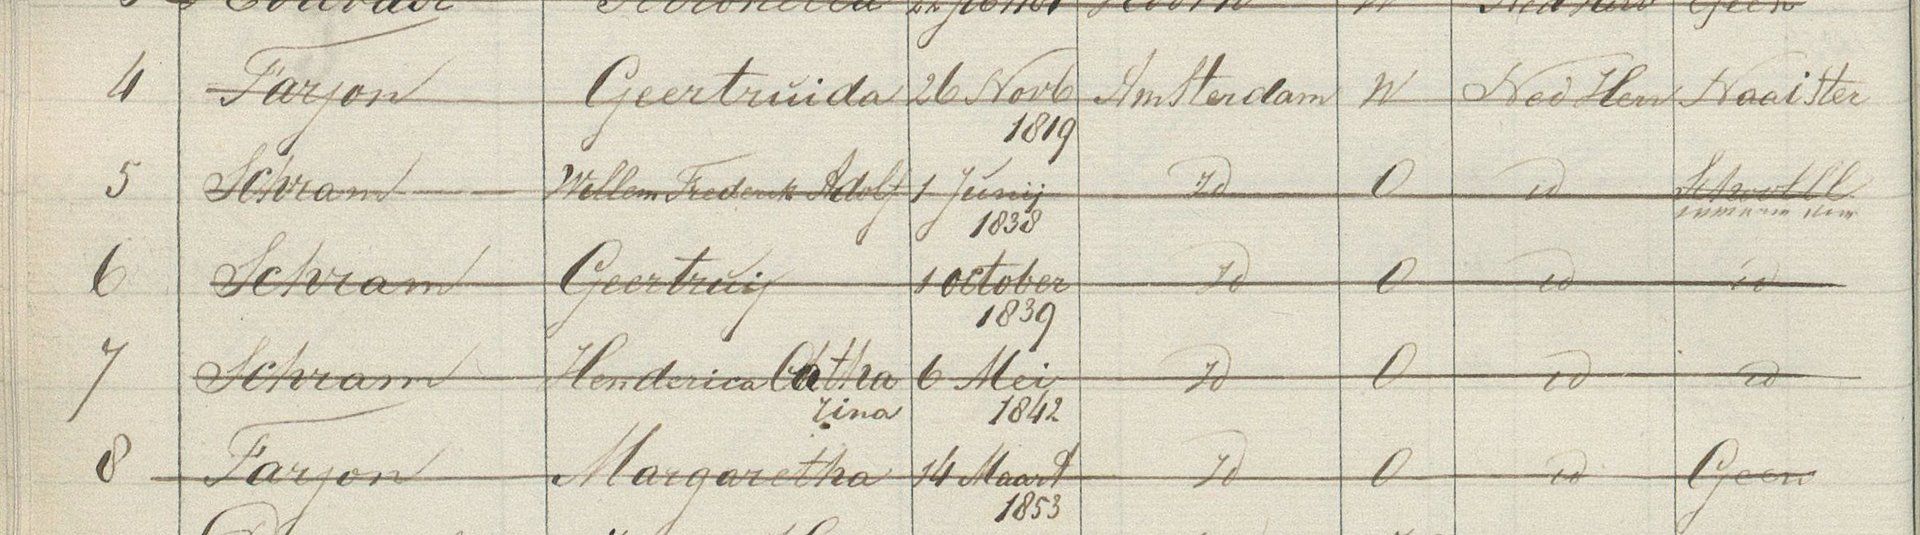 4 Farjon Geertruida 26 Novb Amsterdam W Ned Herv Naaister
1819
5 Schram Willem Frederik Adolf 1 Junij Id O id
1838
6 Schram Geertruij 1 October Id O id id
1839
7 Schram Henderica Catha 6 Mei Id O id id
rina 1842
8 Farjon Margaretha 14 Maart Id O id Geen
1853